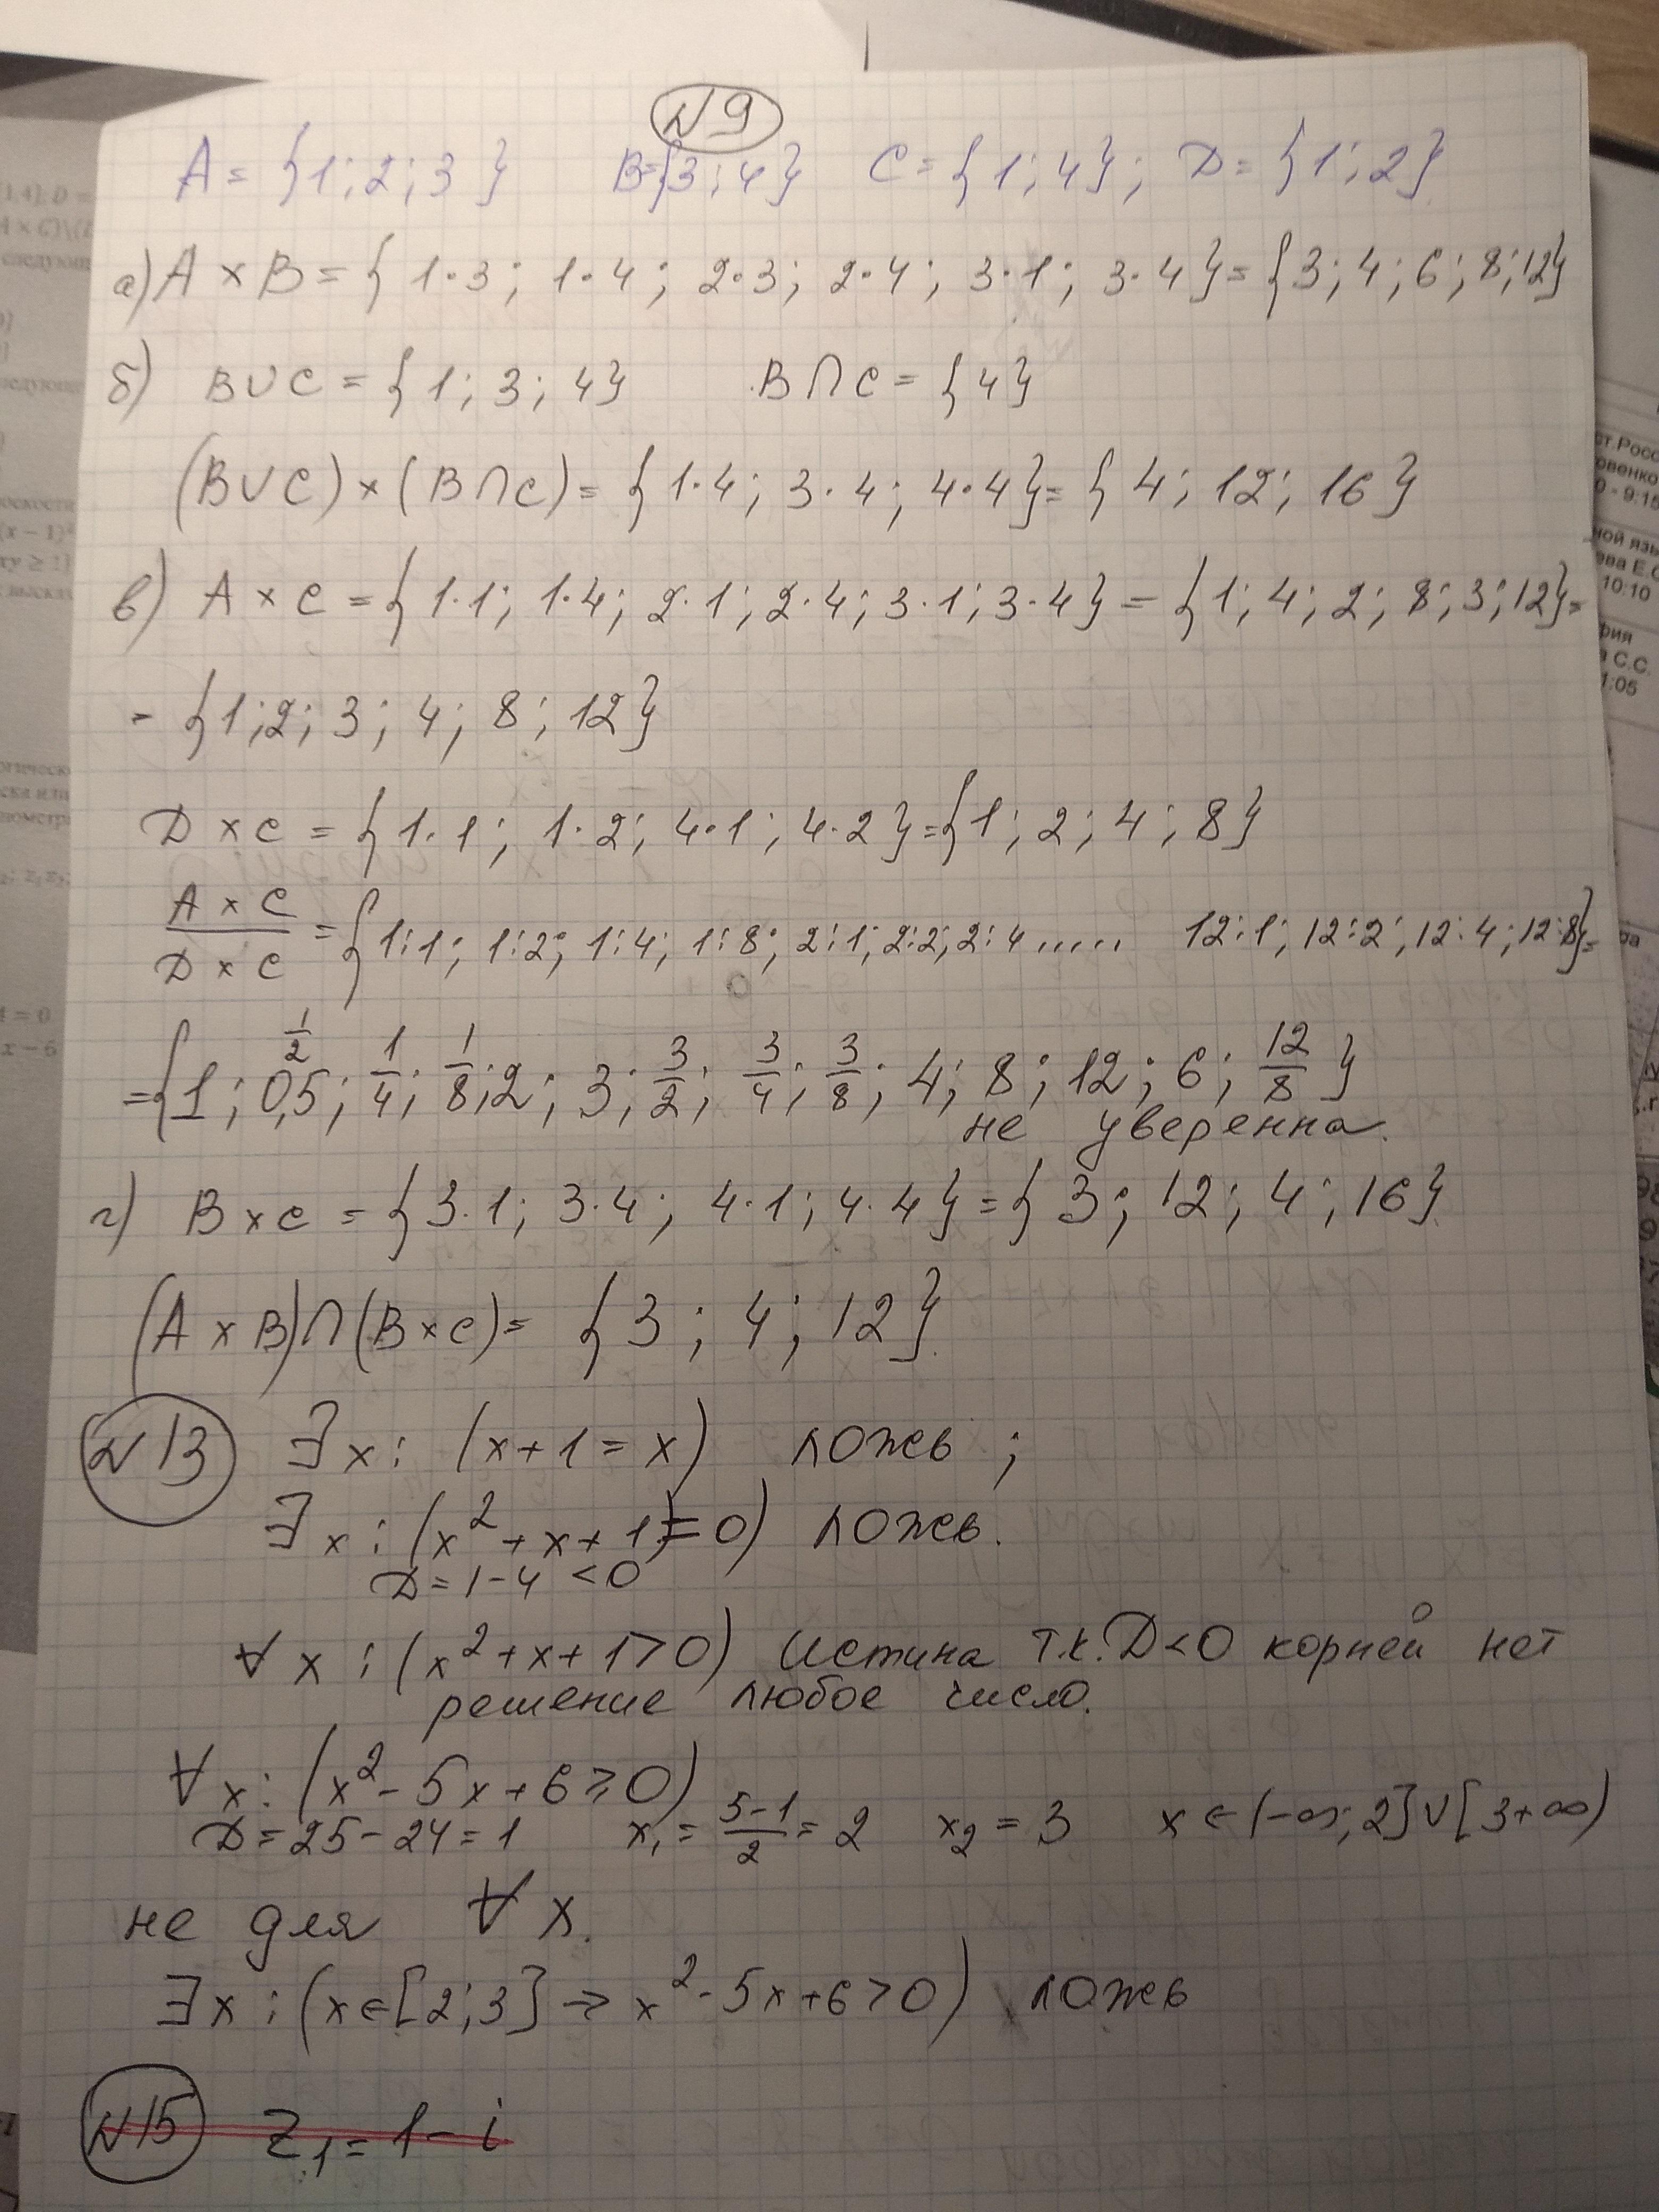 N 9
A = {1; 2; 3} B={3; 4} C = {1; 4}; D = {1; 2}
а) A × B = {1·3; 1·4; 2·3; 2·4; 3·1; 3·4} = {3; 4; 6; 8; 12}
б) B∪C = {1; 3; 4} B∩C = {4}
(B∪C) × (B∩C) = {1·4; 3·4; 4·4} = {4; 12; 16}
в) A × C = {1·1; 1·4; 2·1; 2·4; 3·1; 3·4} = {1; 4; 2; 8; 3; 12} =
- {1; 2; 3; 4; 8; 12}
D × C = {1·1; 1·2; 4·1; 4·2} = {1; 2; 4; 8}
A × C / D × C = {1:1; 1:2; 1:4; 1:8; 2:1; 2:2; 2:4 ..... 12:1; 12:2; 12:4; 12:8} =
= {1; 1/2 0,5; 1/4; 1/8; 2; 3; 3/2; 3/4; 3/8; 4; 8; 12; 6; 12/8}
не уверенна.
г) B × C = {3·1; 3·4; 4·1; 4·4} = {3; 12; 4; 16}
(A × B)∩(B × C) = {3; 4; 12}.
N 13 ∃x: (x+1 = x) ложь;
∃x: (x² + x + 1 = 0) ложь.
D = 1-4 < 0
∀ x: (x² + x + 1 > 0) Истина т.к. D < 0 корней нет
решение любое число.
∀x: (x² - 5x + 6 ≥ 0)
D = 25 - 24 = 1 x₁ = 5-1/2 = 2 x₂ = 3 x ∈ (-∞; 2] ∪ [3 +∞)
не для ∀ x.
∃x: (x ∈ [2; 3] → x² - 5x + 6 > 0) ложь
N 15 Z₁ = 1 - i
[1,4]; D =
A × C)\(
следующ
следующ
оскости
(x − 1)²
xy ≥ 1}
x − 6
ст.Росс
овенко
0 - 9:15
ной язы
ева Е.С
10:10
фия
а С.С.
1:05